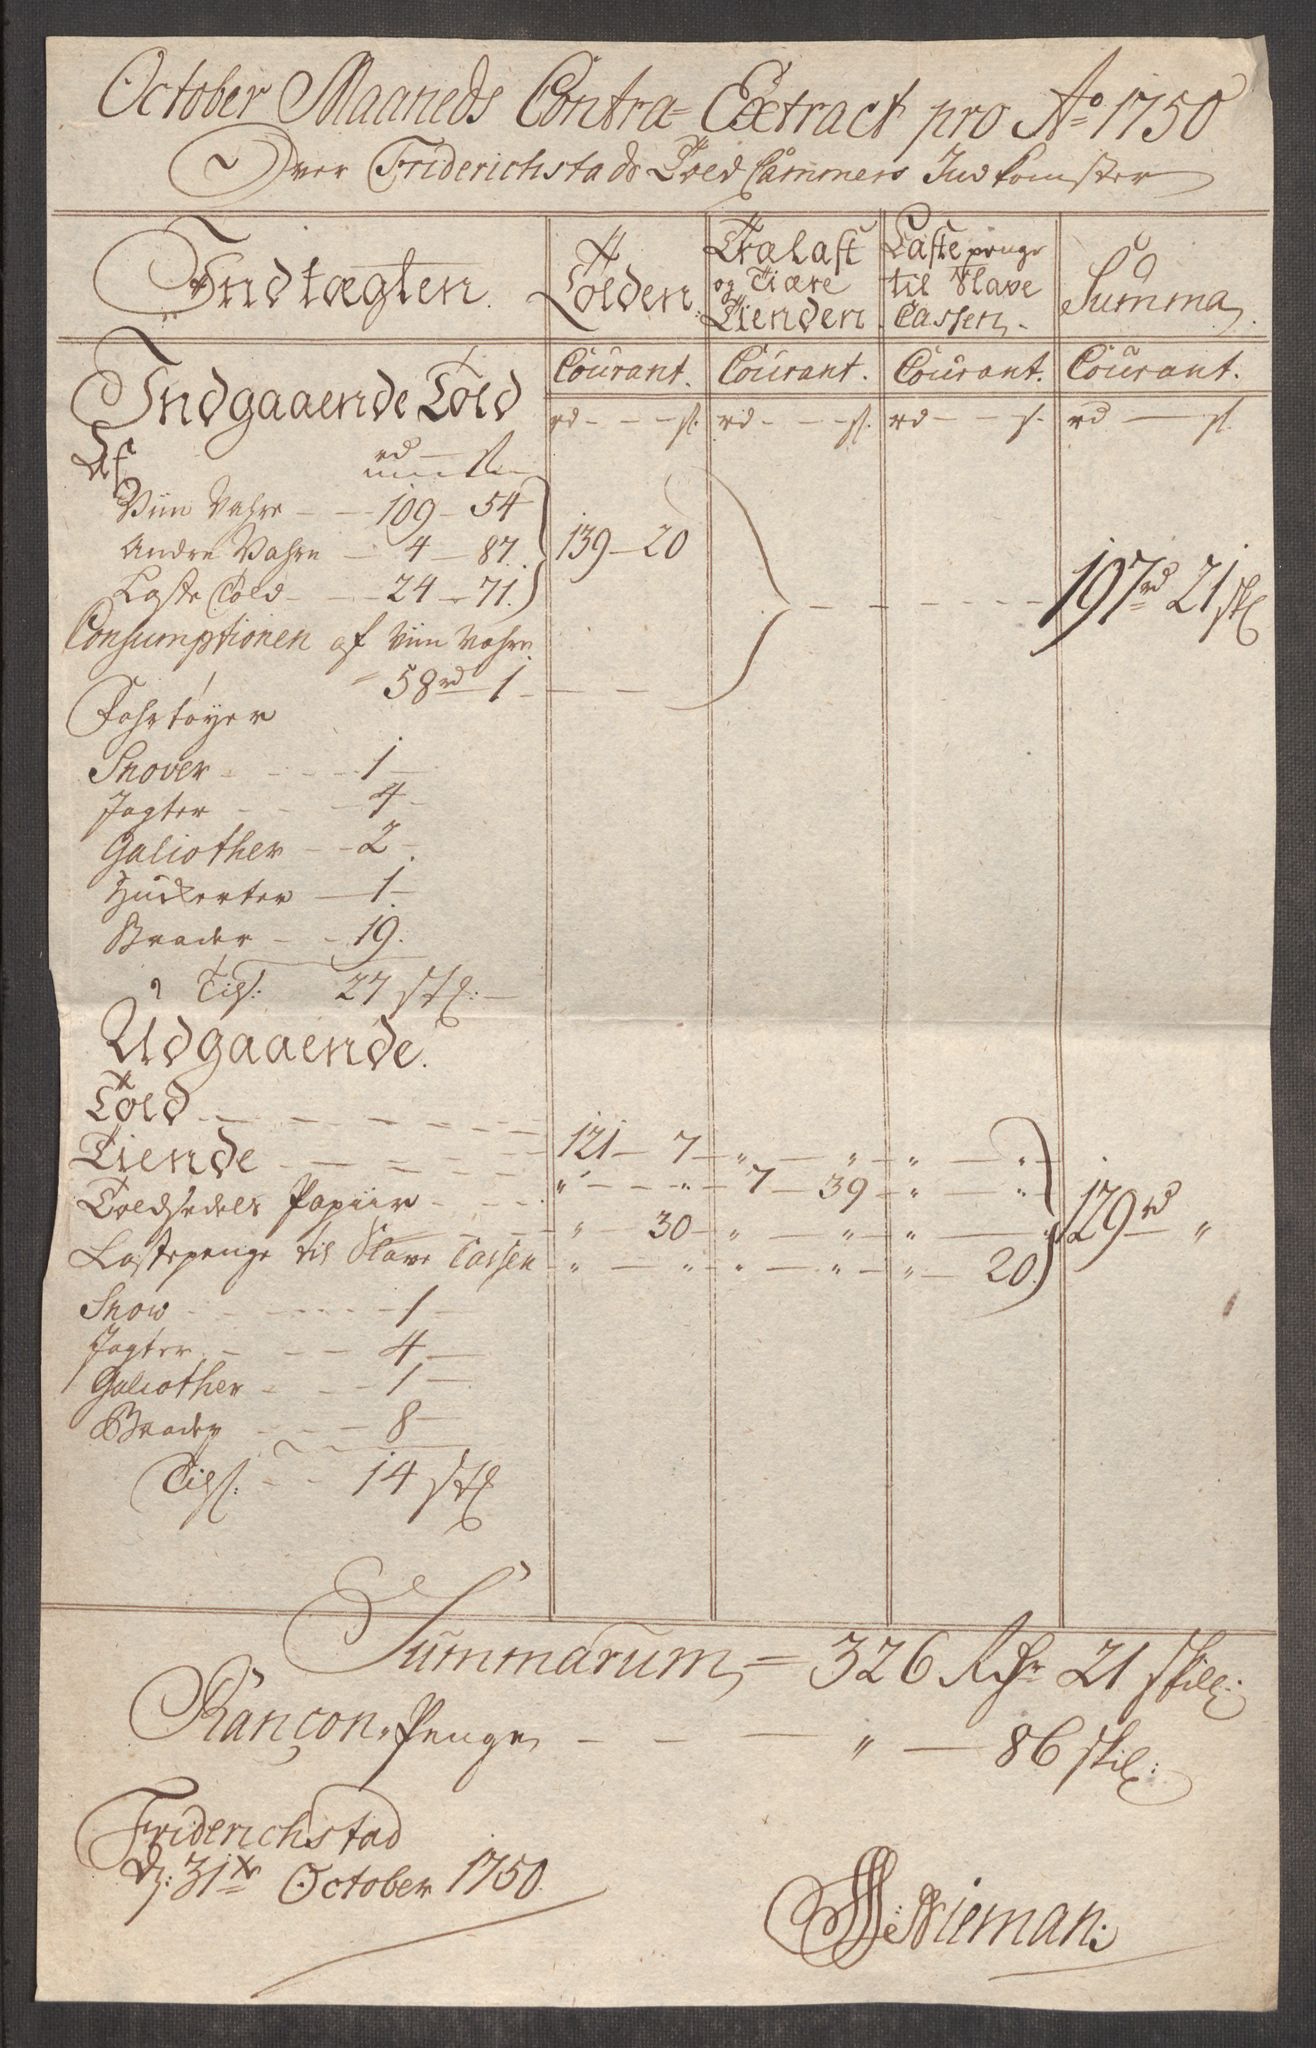 October Maaneds Contra-Extract pro Ao 1750
Over Friderichstads Told Cammers Indkomster
Indtægten. Tolden. Trælast og Tiære Tienden. Laste penge til Slave Cassen. Summa
Courant. Courant. Courant. Courant.
Indgaaende Told rd - - - s. rd - - - s. rd - - s. rd - s.
Af rd - s
Viin Vahre - - 109 - 54
Andre Vahre - 4 - 87. 139 - 20 197 rd 21 sk
Laste Told - - - 24 - 71.
Consumptionen af Viin Vahre
58 rd 1 - - -
Fahrtøyer
Snover - - - - 1 -
Jagter - - - 4 -
Galiother - - 2 -
Huckerter - 1.
Brader - - 19.
Tils: 27 stk: -
Udgaaende.
Told - - - - - - 121 - 7 - " - " - " - " -
Tiende - - - - - " - - " - 7 - 39 - " - "
Toldsedels Papiir - - - " - 30 - " - " - " - " 129 rd "
Lastepenge til Slave Cassen - " - " - " - " - " - 20
Snow - - - - - 1 -
Jagter - - - 4 -
Galiother - - - 1 -
Brader - - - 8 -
Tils: - - 14 stk
Summarum = 326 Rdr 21 skill:
Rançon-Penge - - - " - 86 skil:
Friderichstad
d: 31te October 1750.
Nieman: